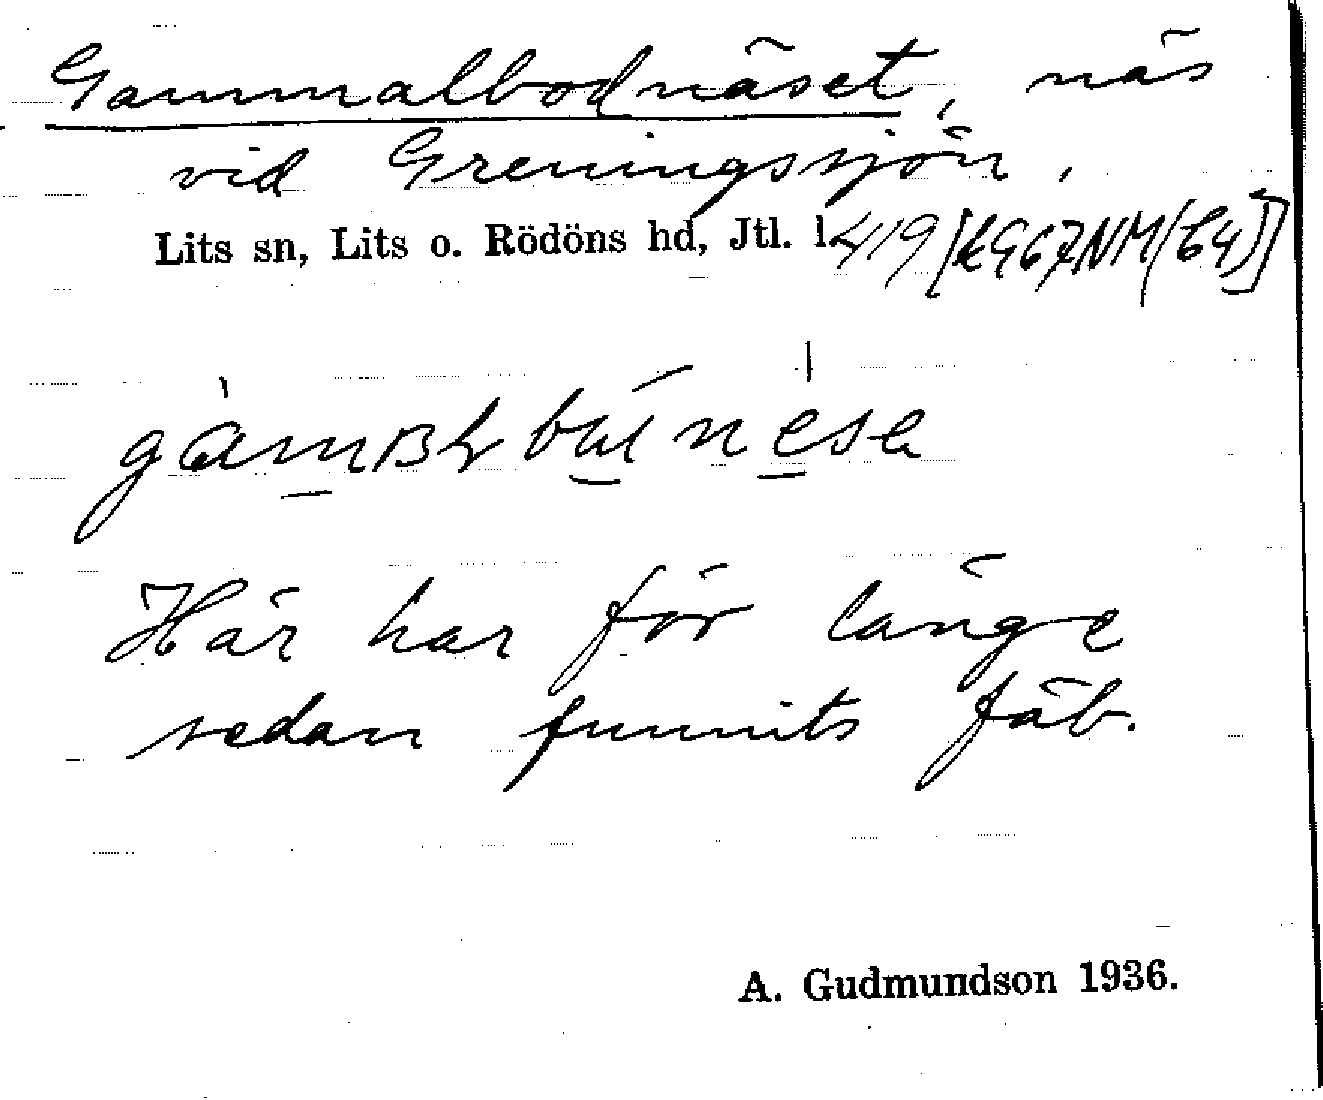 Gammalbodnäset, näs
vid Greningssjön.
Lits sn, Lits o. Rödöns hd, Jtl. l.
Här har för länge
sedan funnits fäb.
A. Gudmundson 1936.